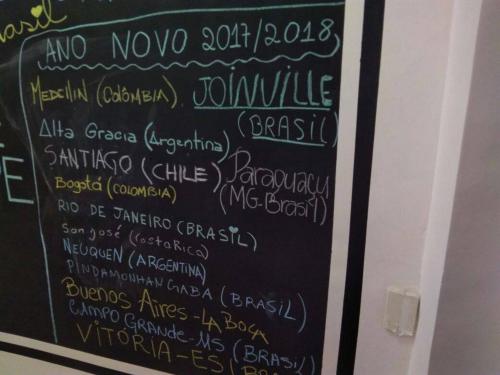 Brasil
ANO NOVO 2017/2018
MEDELLIN (COLÔMBIA)
JOINVILLE
(BRASIL)
Alta Gracia (Argentina)
SANTIAGO (CHILE)
Paraguaçu
(MG-Brasil)
Bogotá (COLOMBIA)
RIO DE JANEIRO (BRASIL)
San José (Costa Rica)
NEUQUEN (ARGENTINA)
PINDAMONHANGABA (BRASIL)
Buenos Aires - LA BOCA
CAMPO GRANDE-MS (BRASIL)
VITÓRIA-ES (BRASIL)